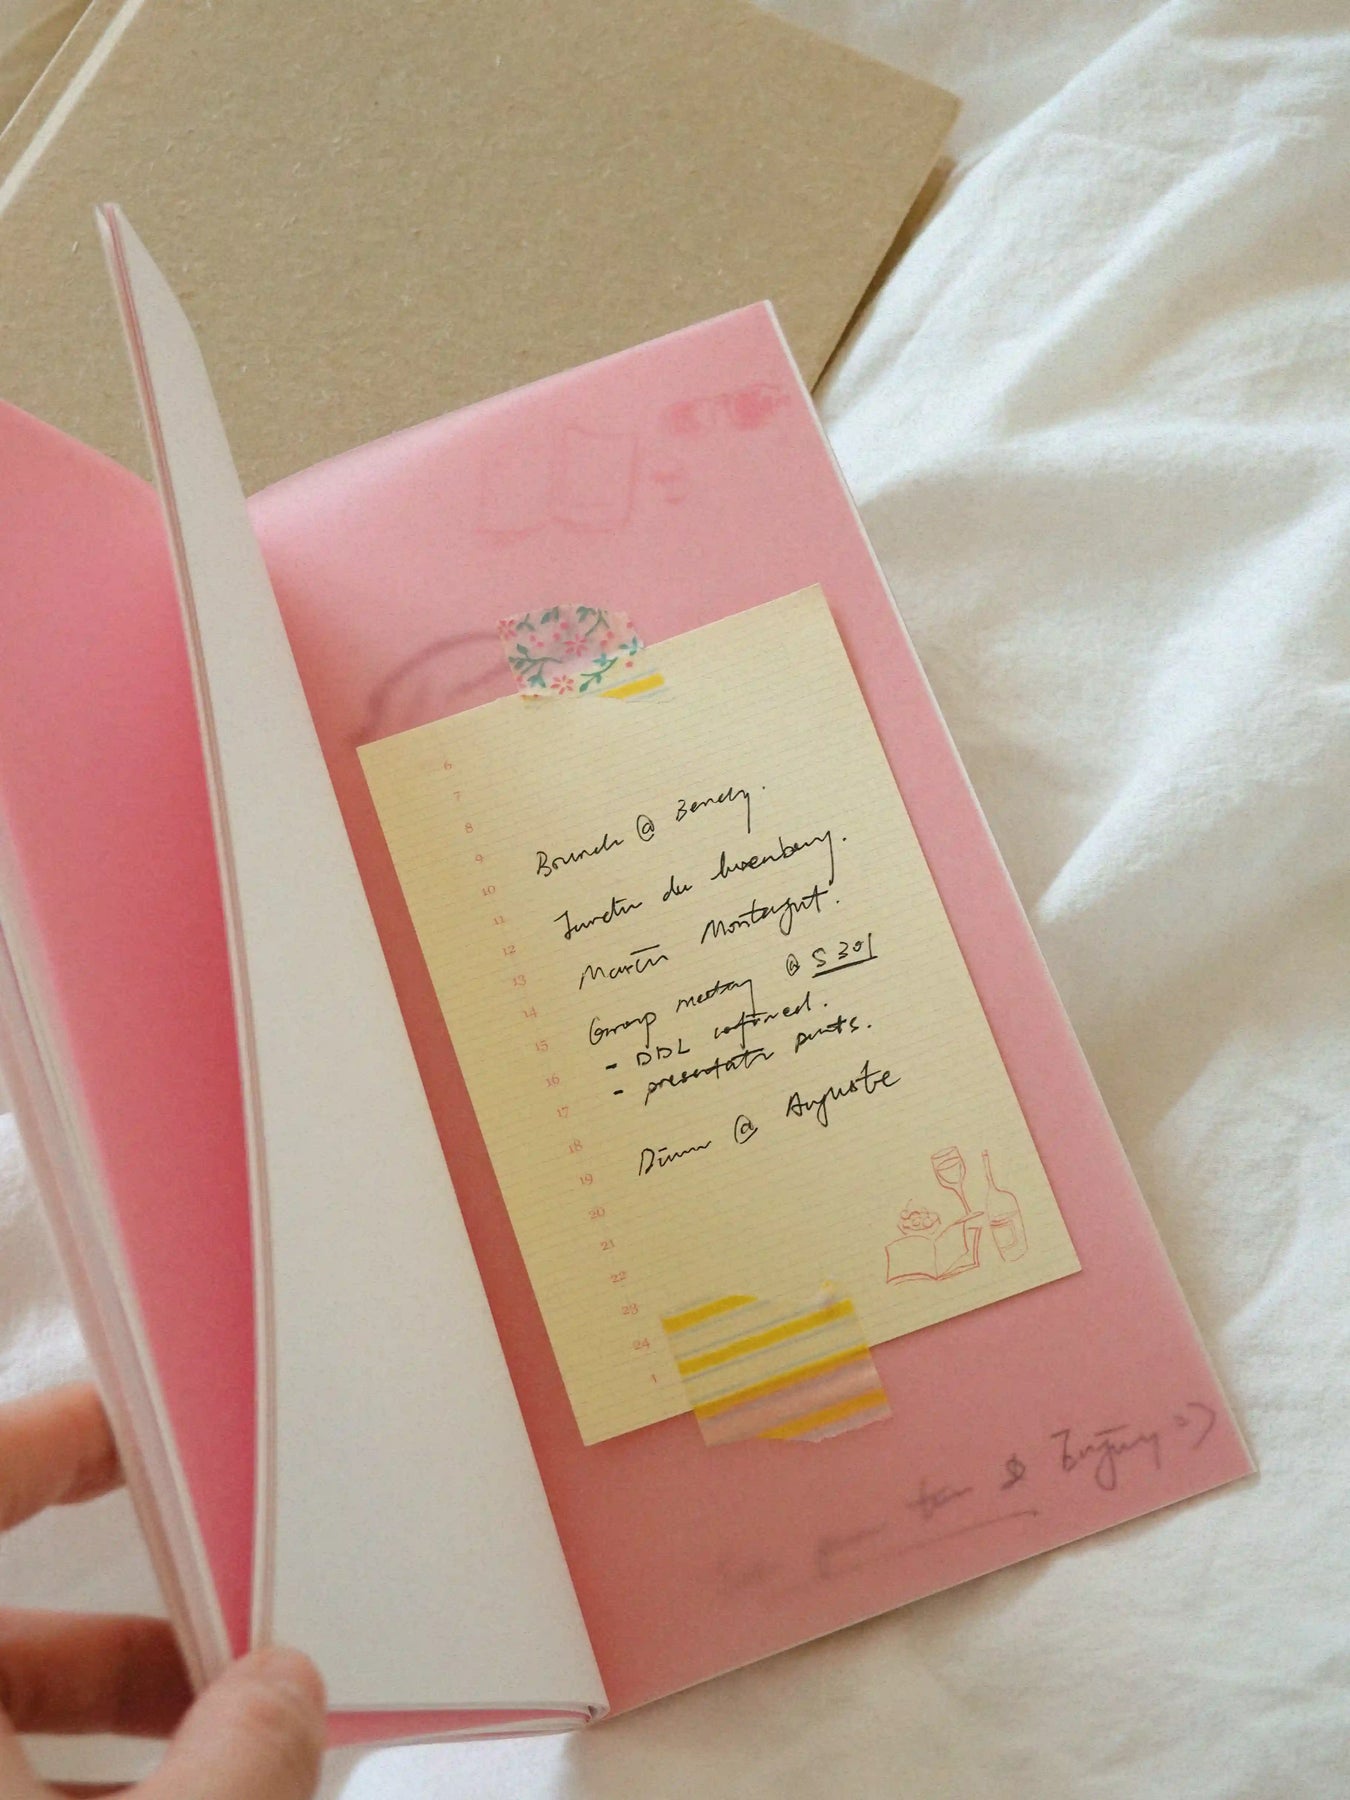 6
7
8
9
10
11
12
13
14
15
16
17
18
19
20
21
22
23
24
1
Brunch @ Benchy.
Jardin du Luxembourg.
Marin Montagut.
Group meeting @ S301
- DDL confirmed.
- presentation points.
Dinner @ Auguste
your